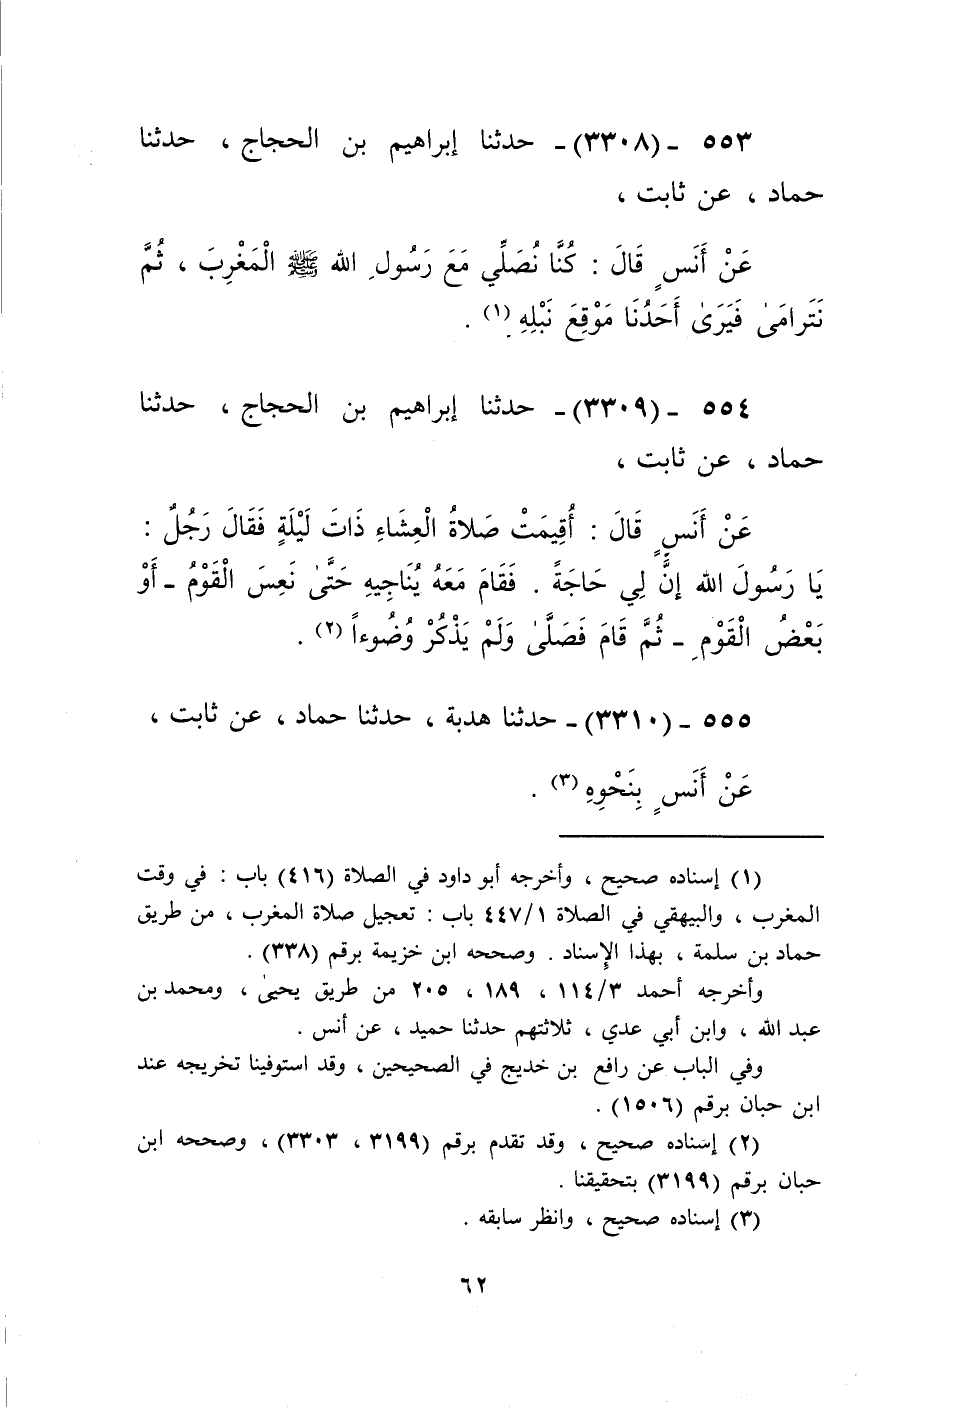 ٥٥٣ ـ (٣٣٠٨) ـ حدثنا إبراهيم بن الحجاج ، حدثنا
حماد ، عن ثابت ،
عَنْ أَنَسٍ قَالَ : كُنَّا نُصَلِّي مَعَ رَسُولِ الله ﷺ الْمَغْرِبَ ، ثُمَّ
نَتَرامَىٰ فَيَرَىٰ أَحَدُنَا مَوْقِعَ نَبْلِهِ (١) .
٥٥٤ ـ (٣٣٠٩) ـ حدثنا إبراهيم بن الحجاج ، حدثنا
حماد ، عن ثابت ،
عَنْ أَنَسٍ قَالَ : أُقِيمَتْ صَلاةُ الْعِشَاءِ ذَاتَ لَيْلَةٍ فَقَالَ رَجُلٌ :
يَا رَسُولَ الله إِنَّ لِي حَاجَةً . فَقَامَ مَعَهُ يُنَاجِيهِ حَتَّىٰ نَعِسَ الْقَوْمُ ـ أَوْ
بَعْضُ الْقَوْمِ ـ ثُمَّ قَامَ فَصَلَّىٰ وَلَمْ يَذْكُرْ وُضُوءاً (٢) .
٥٥٥ ـ (٣٣١٠) ـ حدثنا هدبة ، حدثنا حماد ، عن ثابت ،
عَنْ أَنَسٍ بِنَحْوِهِ (٣) .
(١) إسناده صحيح ، وأخرجه أبو داود في الصلاة (٤١٦) باب : في وقت
المغرب ، والبيهقي في الصلاة ٤٤٧/١ باب : تعجيل صلاة المغرب ، من طريق
حماد بن سلمة ، بهذا الإسناد . وصححه ابن خزيمة برقم (٣٣٨) .
وأخرجه أحمد ١١٤/٣ ، ١٨٩ ، ٢٠٥ من طريق يحيىٰ ، ومحمد بن
عبد الله ، وابن أبي عدي ، ثلاثتهم حدثنا حميد ، عن أنس .
وفي الباب عن رافع بن خديج في الصحيحين ، وقد استوفينا تخريجه عند
ابن حبان برقم (١٥٠٦) .
(٢) إسناده صحيح ، وقد تقدم برقم (٣١٩٩ ، ٣٣٠٣) ، وصححه ابن
حبان برقم (٣١٩٩) بتحقيقنا .
(٣) إسناده صحيح ، وانظر سابقه .
٦٢